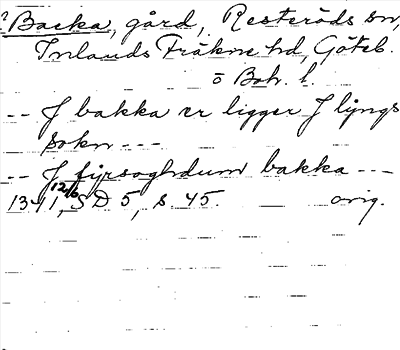 ? Backa, gård, Resteröds sn,
Inlands Fräkne hd, Göteb.
o Boh. l.
-- J bakka er ligger J lyngs
sokn ---
-- J fyrsaghdum bakka ---
13 12/6 41, SD 5, s. 45. orig.